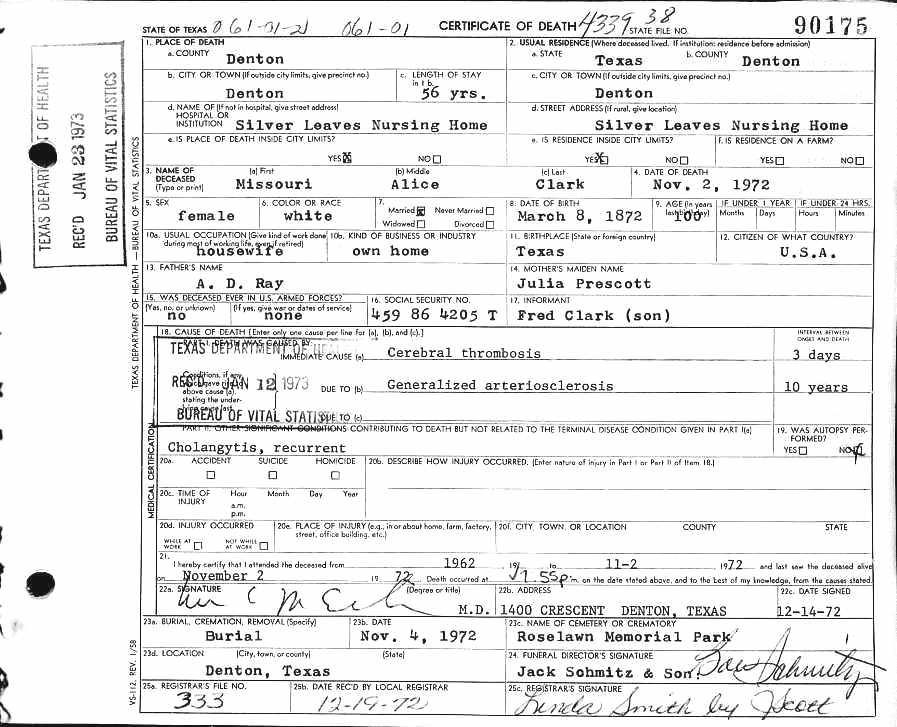 STATE OF TEXAS 061-01-21 061-01 CERTIFICATE OF DEATH 433938 STATE FILE NO. 90175
1. PLACE OF DEATH
a. COUNTY Denton
2. USUAL RESIDENCE (Where deceased lived. If institution: residence before admission)
a. STATE Texas b. COUNTY Denton
b. CITY OR TOWN (If outside city limits, give precinct no.) Denton
c. LENGTH OF STAY in 1 b. 56 yrs.
c. CITY OR TOWN (If outside city limits, give precinct no.) Denton
d. NAME OF (If not in hospital, give street address)
HOSPITAL OR
INSTITUTION Silver Leaves Nursing Home
d. STREET ADDRESS (If rural, give location)
Silver Leaves Nursing Home
e. IS PLACE OF DEATH INSIDE CITY LIMITS?
YES NO
e. IS RESIDENCE INSIDE CITY LIMITS?
YES NO
f. IS RESIDENCE ON A FARM?
YES NO
3. NAME OF DECEASED (Type or print)
(a) First Missouri
(b) Middle Alice
(c) Last Clark
4. DATE OF DEATH
Nov. 2, 1972
5. SEX female
6. COLOR OR RACE white
7. Married Never Married
Widowed Divorced
8. DATE OF BIRTH March 8, 1872
9. AGE (In years last birthday) 100
IF UNDER 1 YEAR Months Days
IF UNDER 24 HRS. Hours Minutes
10a. USUAL OCCUPATION (Give kind of work done during most of working life, even if retired)
housewife
10b. KIND OF BUSINESS OR INDUSTRY
own home
11. BIRTHPLACE (State or foreign country)
Texas
12. CITIZEN OF WHAT COUNTRY?
U.S.A.
13. FATHER'S NAME
A. D. Ray
14. MOTHER'S MAIDEN NAME
Julia Prescott
15. WAS DECEASED EVER IN U.S. ARMED FORCES?
(Yes, no, or unknown) (If yes, give war or dates of service)
no none
16. SOCIAL SECURITY NO.
459 86 4205 T
17. INFORMANT
Fred Clark (son)
18. CAUSE OF DEATH [Enter only one cause per line for (a), (b), and (c).]
INTERVAL BETWEEN ONSET AND DEATH
PART I. DEATH WAS CAUSED BY:
IMMEDIATE CAUSE (a) Cerebral thrombosis 3 days
Conditions, if any
which gave rise to
above cause (a),
stating the under-
lying cause last.
DUE TO (b) Generalized arteriosclerosis 10 years
DUE TO (c)
TEXAS DEPARTMENT OF HEALTH
REC'D JAN 12 1973
BUREAU OF VITAL STATIS
PART II. OTHER SIGNIFICANT CONDITIONS CONTRIBUTING TO DEATH BUT NOT RELATED TO THE TERMINAL DISEASE CONDITION GIVEN IN PART I(a)
Cholangytis, recurrent
19. WAS AUTOPSY PERFORMED?
YES NO
20a. ACCIDENT SUICIDE HOMICIDE
20b. DESCRIBE HOW INJURY OCCURRED. (Enter nature of injury in Part I or Part II of Item 18.)
20c. TIME OF INJURY
Hour Month Day Year
a.m.
p.m.
20d. INJURY OCCURRED
WHILE AT WORK NOT WHILE AT WORK
20e. PLACE OF INJURY (e.g., in or about home, farm, factory, street, office building, etc.)
20f. CITY, TOWN, OR LOCATION COUNTY STATE
21.
I hereby certify that I attended the deceased from 1962 19 to 11-2 1972 and last saw the deceased alive
on November 2 19 72 Death occurred at 1:55p m. on the date stated above, and to the best of my knowledge, from the causes stated.
22a. SIGNATURE (Degree or title)
M.D.
22b. ADDRESS
1400 CRESCENT DENTON, TEXAS
22c. DATE SIGNED
12-14-72
23a. BURIAL, CREMATION, REMOVAL (Specify)
Burial
23b. DATE
Nov. 4, 1972
23c. NAME OF CEMETERY OR CREMATORY
Roselawn Memorial Park
23d. LOCATION (City, town, or county) (State)
Denton, Texas
24. FUNERAL DIRECTOR'S SIGNATURE
Jack Schmitz & Son. Schmitz
25a. REGISTRAR'S FILE NO.
333
25b. DATE REC'D BY LOCAL REGISTRAR
12-19-72
25c. REGISTRAR'S SIGNATURE
Linda Smith by J Scott
TEXAS DEPARTMENT OF HEALTH
REC'D JAN 23 1973
BUREAU OF VITAL STATISTICS
TEXAS DEPARTMENT OF HEALTH — BUREAU OF VITAL STATISTICS
MEDICAL CERTIFICATION
VS-112, REV. 1/58